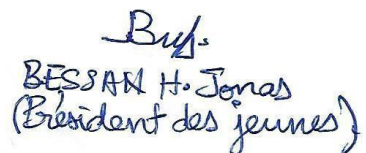 BESSAN H. Jonas
(Président des jeunes)